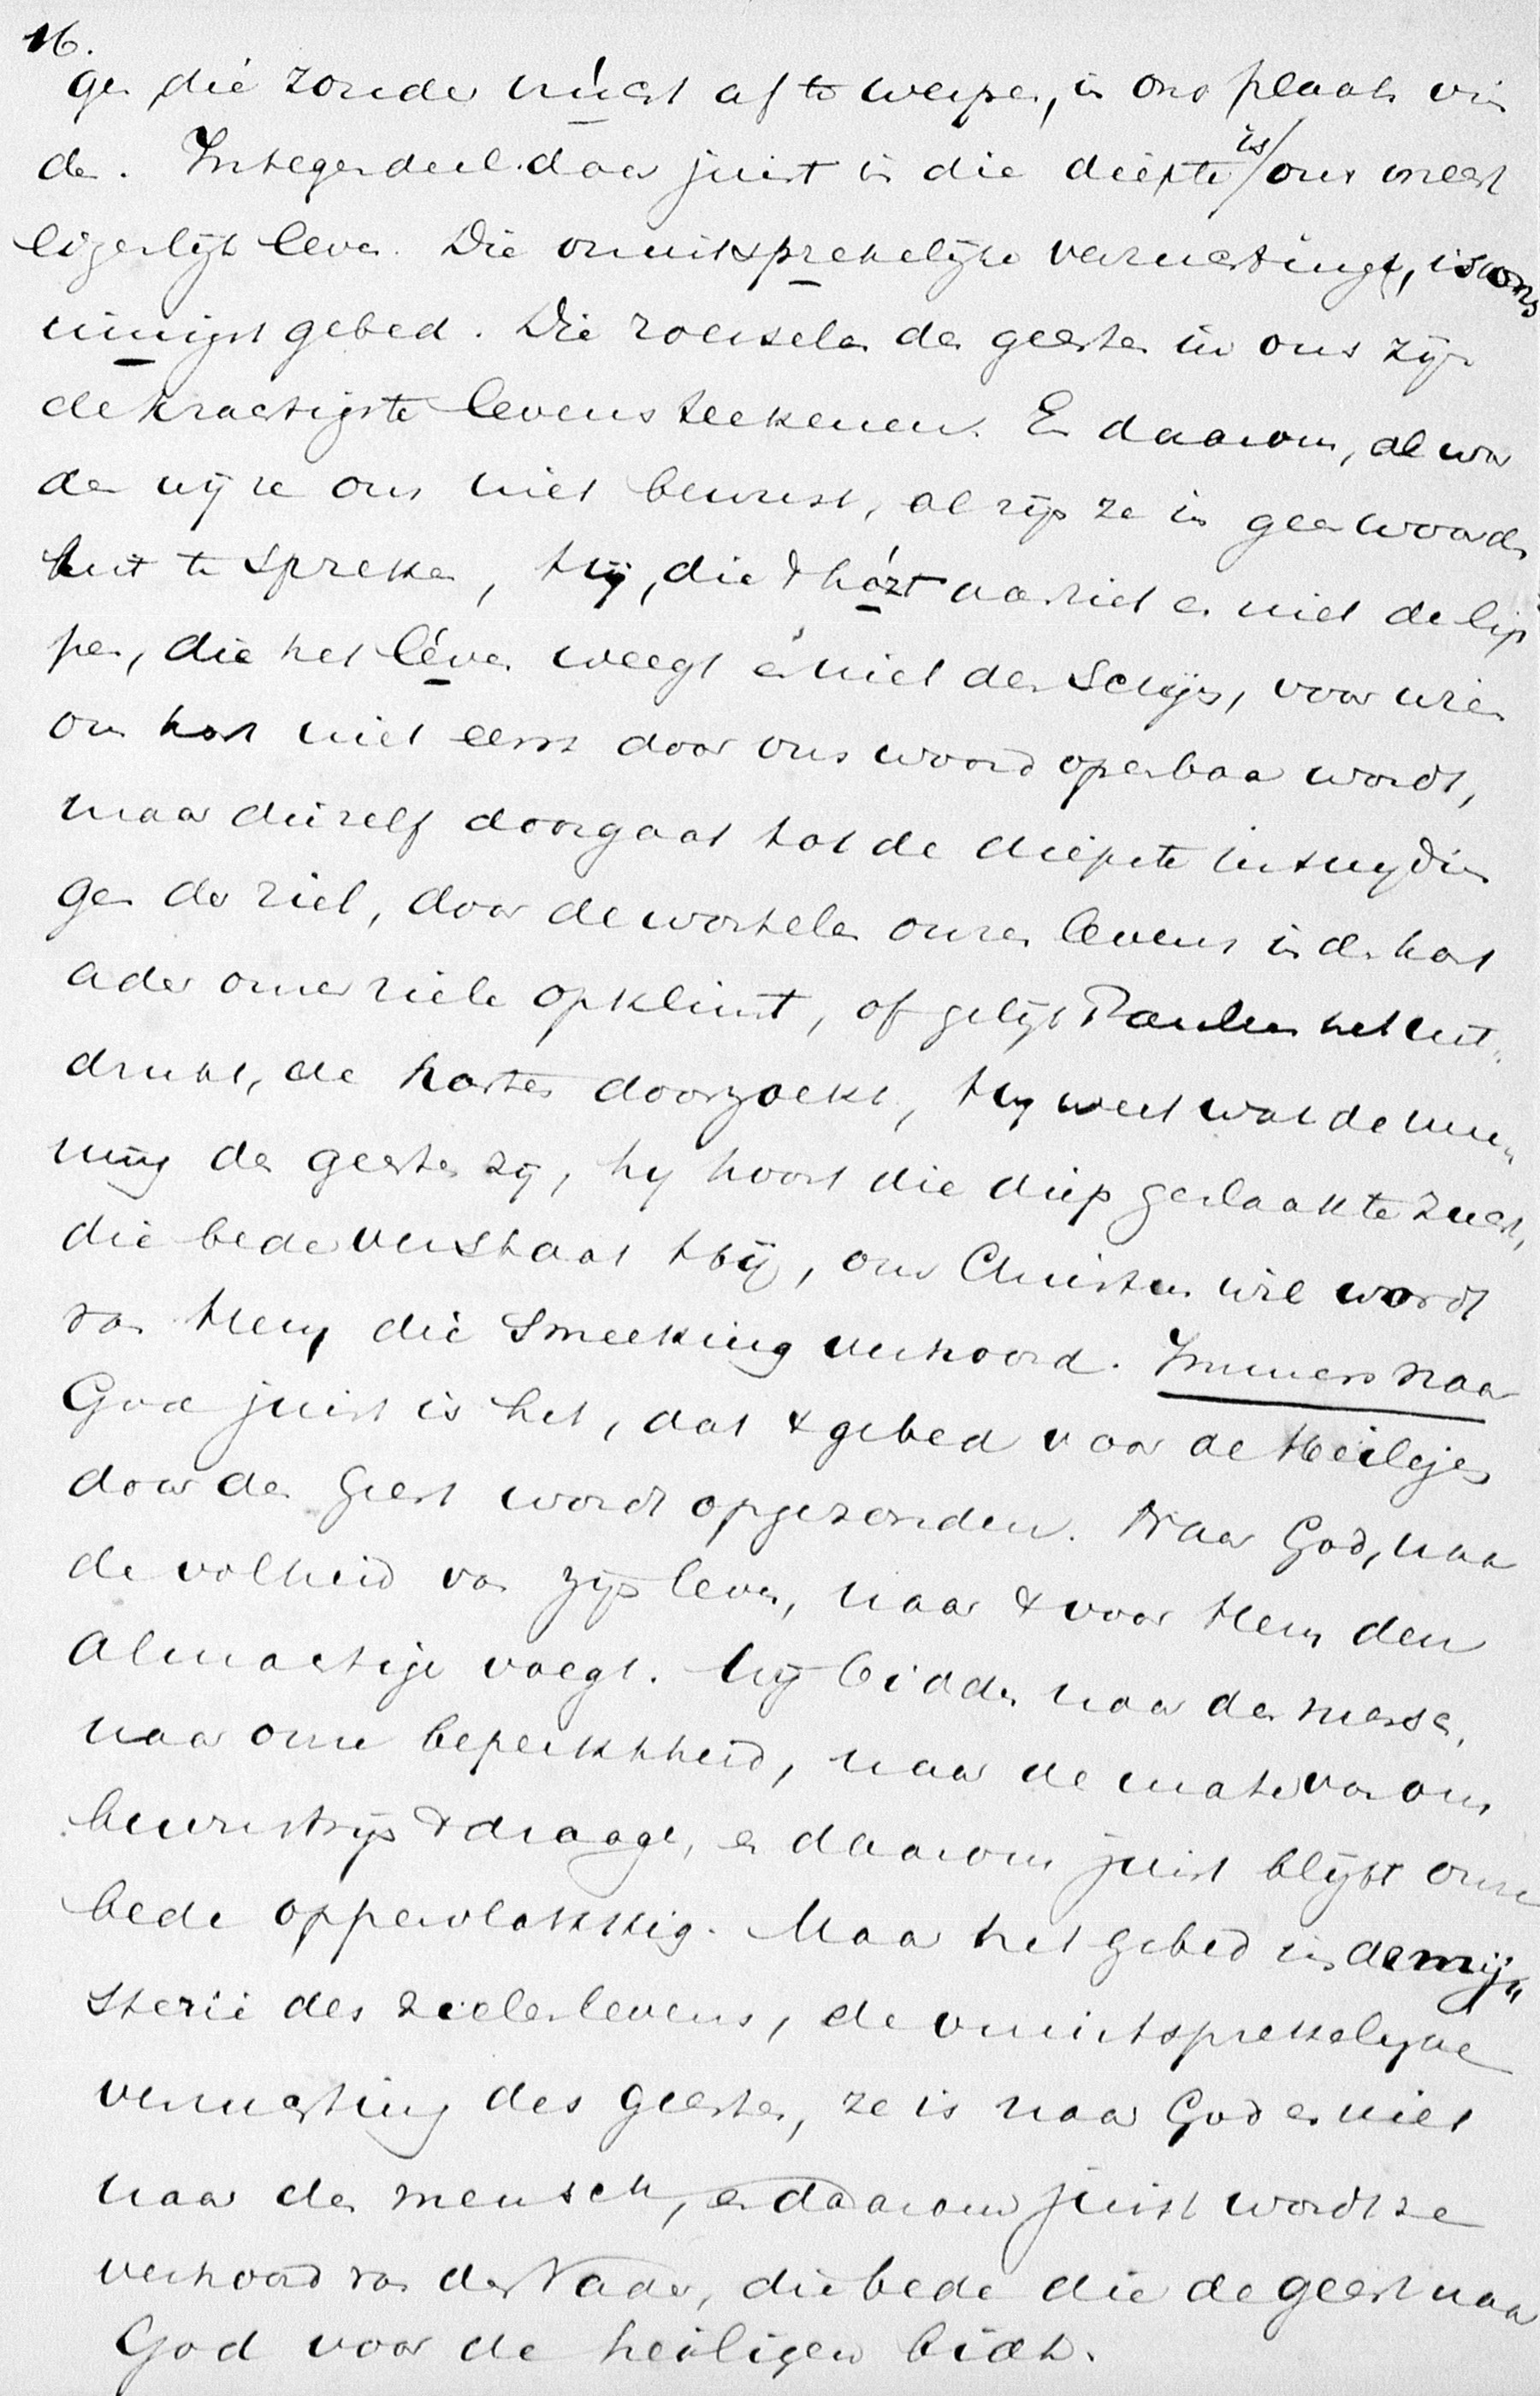 16.
gen die zonde niet af te werpen, in ons plaats vin
den. Integendeel. daar juist in die diepte is ons meest
eigenlijk leven. Die onuitsprekelijke verzuchting, is ons
innigst gebed. Die roerselen des geestes in ons zijn
de krachtigste levensteekenen. En daarom, al wor
den wij ze ons niet bewust, al zijn ze in geen woorden
uit te spreken, Hij, die 't hart aanziet en niet de lip
pen, die het léven weegt en niet den schijn, voor wien
ons hart niet eerst door ons woord openbaar wordt,
maar die zelf doorgaat tot de diepste
gen der ziel, door de wortelen onzes levens in de hart
ader onzer ziele opklimt, of gelijk Paulus het uit„
drukt, de harten doorzoekt, Hij weet wat de mee„
ning des geestes zij, hij hoort die diep geslaakte zucht,
die bede verstaat Hij, om Christus wil wordt
van Hem die smeeking verhoord. Immers naar
God juist is het, dat 't gebed voor de Heiligen
door den Geest wordt opgezonden. Naar God, naar
de volheid van zijn leven, naar 't voor Hem den
Almachtige voegt. Wij bidden naar den mensch,
naar onze beperktheid, naar de mate van ons
bewustzijn 't draagt, en daarom juist blijft onze
bede oppervlakkig. Maar het gebed in de mij„
sterie des zielenlevens, de onuitsprekelijke
verzuchting des geestes, ze is naar God en niet
naar den mensch, en daarom juist wordt ze
verhoord van den Vader, die bede die de geest naar
God voor de heiligen bidt.